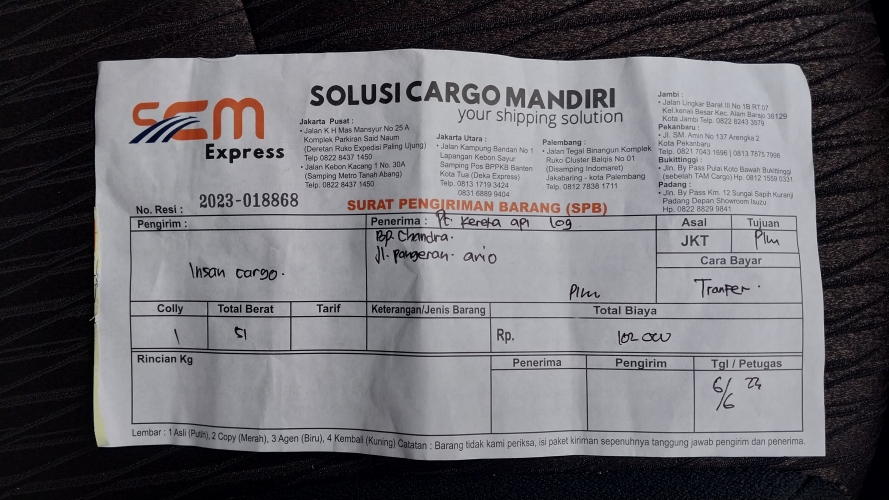 SCM
Express
SOLUSI CARGO MANDIRI
your shipping solution
Jakarta Pusat :
• Jalan K H Mas Mansyur No 25 A
Komplek Parkiran Said Naum
(Deretan Ruko Expedisi Paling Ujung)
Telp 0822 8437 1450
• Jalan Kebon Kacang 1 No. 30A
(Samping Metro Tanah Abang)
Telp. 0822 8437 1450
Jakarta Utara :
• Jalan Kampung Bandan No 1
Lapangan Kebon Sayur
Samping Pos BPPKB Banten
Kota Tua (Deka Express)
Telp. 0813 1719 3424
0831 6889 9404
Palembang :
• Jalan Tegal Binangun Komplek
Ruko Cluster Balqis No 01
(Disamping Indomaret)
Jakabaring - kota Palembang
Telp. 0812 7838 1711
Jambi :
• Jalan Lingkar Barat III No 1B RT.07
Kel.kenali Besar Kec. Alam Barajo 36129
Kota Jambi Telp. 0822 8243 3579
Pekanbaru :
• Jl. SM. Amin No 137 Arengka 2
Kota Pekanbaru
Telp. 0821 7043 1696 | 0813 7875 7996
Bukittinggi :
• Jln. By Pass Pulai Koto Bawah Bukittinggi
(sebelah TAM Cargo) Hp. 0812 1559 0331
Padang :
• Jln. By Pass Km. 12 Sungai Sapih Kuranji
Padang Depan Showroom Isuzu
Hp. 0822 8829 9841
No. Resi : 2023-018868
SURAT PENGIRIMAN BARANG (SPB)
Pengirim :
Insan cargo.
Penerima : Pt. Kereta api log
Bp. Chandra.
Jl. pangeran. ario
Plm
Asal
Tujuan
JKT
Plm
Cara Bayar
Tranfer.
Colly
Total Berat
Tarif
Keterangan/Jenis Barang
Total Biaya
1
51
Rp. 102 000
Rincian Kg
Penerima
Pengirim
Tgl / Petugas
6/6 23
Lembar : 1 Asli (Putih), 2 Copy (Merah), 3 Agen (Biru), 4 Kembali (Kuning) Catatan : Barang tidak kami periksa, isi paket kiriman sepenuhnya tanggung jawab pengirim dan penerima.